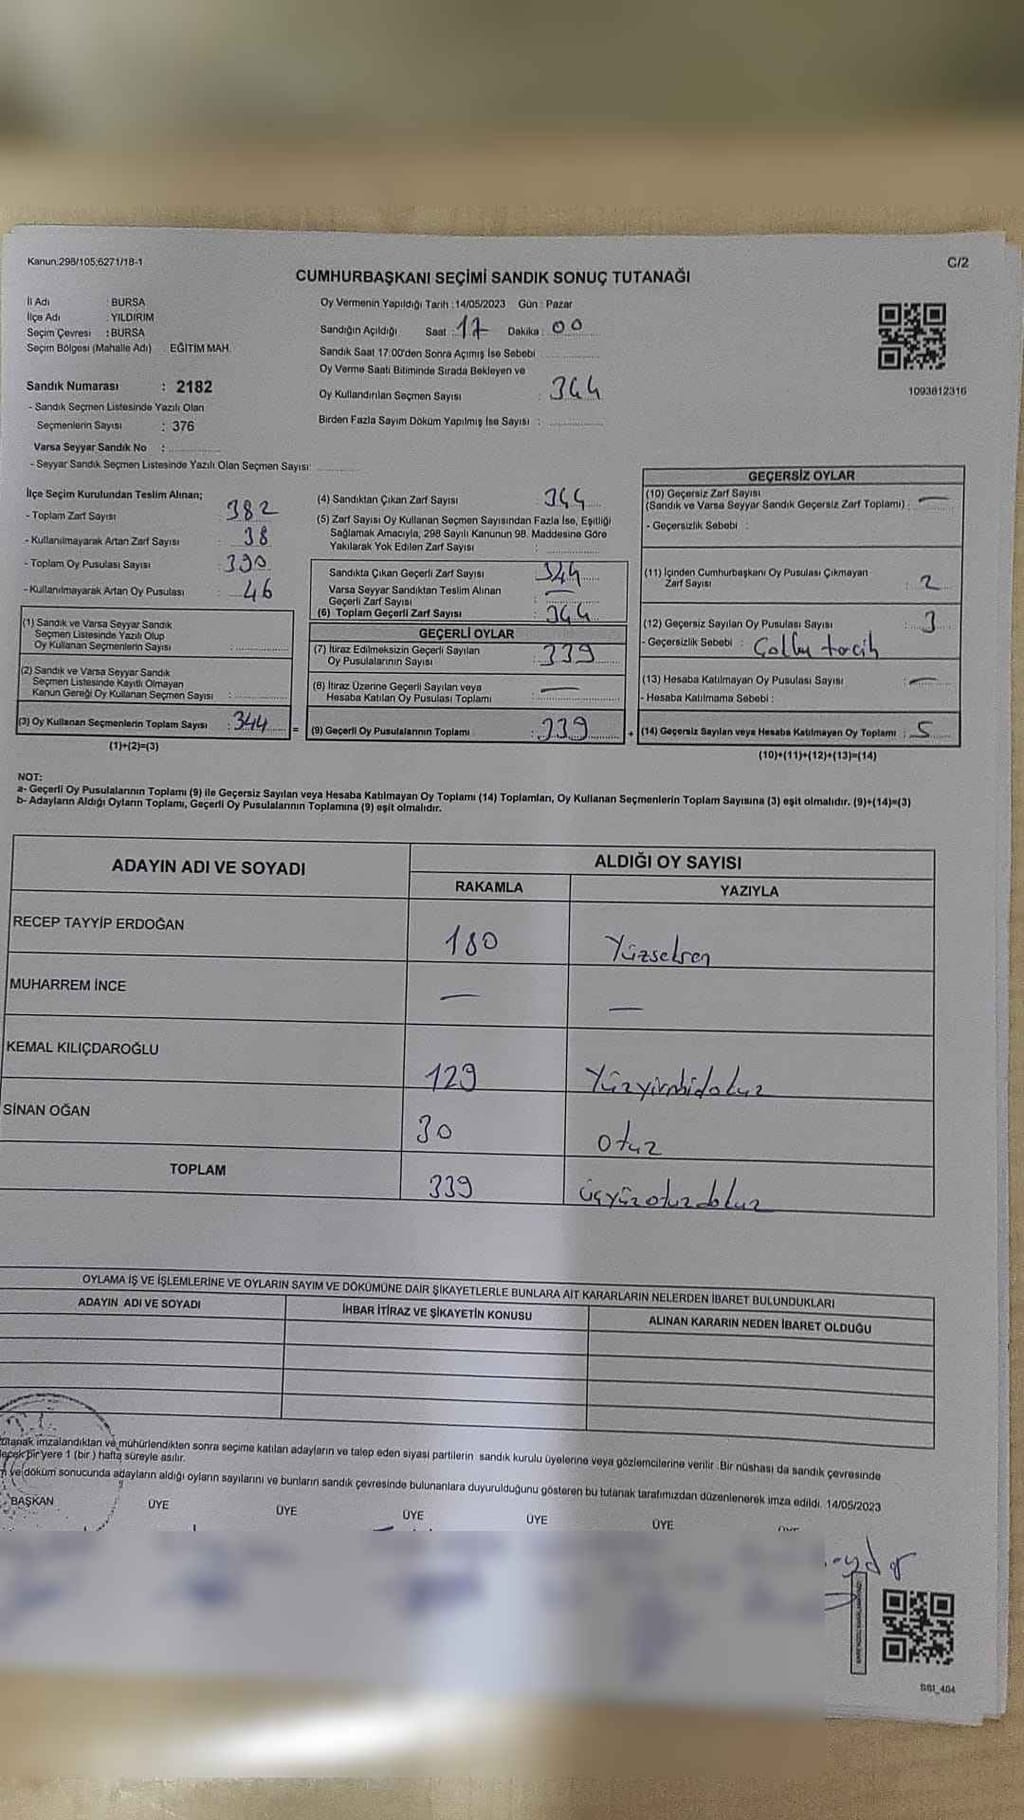 Kanun:298/105;6271/18-1
C/2
CUMHURBAŞKANI SEÇİMİ SANDIK SONUÇ TUTANAĞI
İl Adı : BURSA
İlçe Adı : YILDIRIM
Seçim Çevresi : BURSA
Seçim Bölgesi (Mahalle Adı) EĞİTİM MAH.
Sandık Numarası : 2182
- Sandık Seçmen Listesinde Yazılı Olan
Seçmenlerin Sayısı : 376
Varsa Seyyar Sandık No :
- Seyyar Sandık Seçmen Listesinde Yazılı Olan Seçmen Sayısı:
Oy Vermenin Yapıldığı Tarih : 14/05/2023 Gün : Pazar
Sandığın Açıldığı Saat : 17 Dakika : 00
Sandık Saat 17:00'den Sonra Açımış İse Sebebi
Oy Verme Saati Bitiminde Sırada Bekleyen ve
Oy Kullandırılan Seçmen Sayısı : 344
Birden Fazla Sayım Döküm Yapılmış İse Sayısı :
1093612316
İlçe Seçim Kurulundan Teslim Alınan;
- Toplam Zarf Sayısı : 382
- Kullanılmayarak Artan Zarf Sayısı : 38
- Toplam Oy Pusulası Sayısı : 390
- Kullanılmayarak Artan Oy Pusulası : 46
(1) Sandık ve Varsa Seyyar Sandık
Seçmen Listesinde Yazılı Olup
Oy Kullanan Seçmenlerin Sayısı :
(2) Sandık ve Varsa Seyyar Sandık
Seçmen Listesinde Kayıtlı Olmayan
Kanun Gereği Oy Kullanan Seçmen Sayısı :
(3) Oy Kullanan Seçmenlerin Toplam Sayısı : 344
(1)+(2)=(3)
(4) Sandıktan Çıkan Zarf Sayısı 344
(5) Zarf Sayısı Oy Kullanan Seçmen Sayısından Fazla İse, Eşitliği
Sağlamak Amacıyla, 298 Sayılı Kanunun 98. Maddesine Göre
Yakılarak Yok Edilen Zarf Sayısı :
Sandıkta Çıkan Geçerli Zarf Sayısı : 344
Varsa Seyyar Sandıktan Teslim Alınan
Geçerli Zarf Sayısı : —
(6) Toplam Geçerli Zarf Sayısı : 344
GEÇERLİ OYLAR
(7) İtiraz Edilmeksizin Geçerli Sayılan
Oy Pusulalarının Sayısı : 339
(8) İtiraz Üzerine Geçerli Sayılan veya
Hesaba Katılan Oy Pusulası Toplamı : —
= (9) Geçerli Oy Pusulalarının Toplamı : 339
GEÇERSİZ OYLAR
(10) Geçersiz Zarf Sayısı
(Sandık ve Varsa Seyyar Sandık Geçersiz Zarf Toplamı) : —
- Geçersizlik Sebebi :
(11) İçinden Cumhurbaşkanı Oy Pusulası Çıkmayan
Zarf Sayısı : 2
(12) Geçersiz Sayılan Oy Pusulası Sayısı : 3
- Geçersizlik Sebebi :
(13) Hesaba Katılmayan Oy Pusulası Sayısı : —
- Hesaba Katılmama Sebebi :
+ (14) Geçersiz Sayılan veya Hesaba Katılmayan Oy Toplamı : 5
(10)+(11)+(12)+(13)=(14)
NOT:
a- Geçerli Oy Pusulalarının Toplamı (9) ile Geçersiz Sayılan veya Hesaba Katılmayan Oy Toplamı (14) Toplamları, Oy Kullanan Seçmenlerin Toplam Sayısına (3) eşit olmalıdır. (9)+(14)=(3)
b- Adayların Aldığı Oyların Toplamı, Geçerli Oy Pusulalarının Toplamına (9) eşit olmalıdır.
ADAYIN ADI VE SOYADI
ALDIĞI OY SAYISI
RAKAMLA YAZIYLA
RECEP TAYYİP ERDOĞAN 180 Yüzseksen
MUHARREM İNCE — —
KEMAL KILIÇDAROĞLU 129 Yüzyirmidokuz
SİNAN OĞAN 30 otuz
TOPLAM 339 üçyüzotuzdokuz
OYLAMA İŞ VE İŞLEMLERİNE VE OYLARIN SAYIM VE DÖKÜMÜNE DAİR ŞİKAYETLERLE BUNLARA AİT KARARLARIN NELERDEN İBARET BULUNDUKLARI
ADAYIN ADI VE SOYADI İHBAR İTİRAZ VE ŞİKAYETİN KONUSU ALINAN KARARIN NEDEN İBARET OLDUĞU
imzalandıktan ve mühürlendikten sonra seçime katılan adayların ve talep eden siyasi partilerin sandık kurulu üyelerine veya gözlemcilerine verilir. Bir nüshası da sandık çevresinde
bir yere 1 (bir) hafta süreyle asılır.
ve döküm sonucunda adayların aldığı oyların sayılarını ve bunların sandık çevresinde bulunanlara duyurulduğunu gösteren bu tutanak tarafımızdan düzenlenerek imza edildi. 14/05/2023
BAŞKAN ÜYE ÜYE ÜYE ÜYE ÜYE
SS1_404